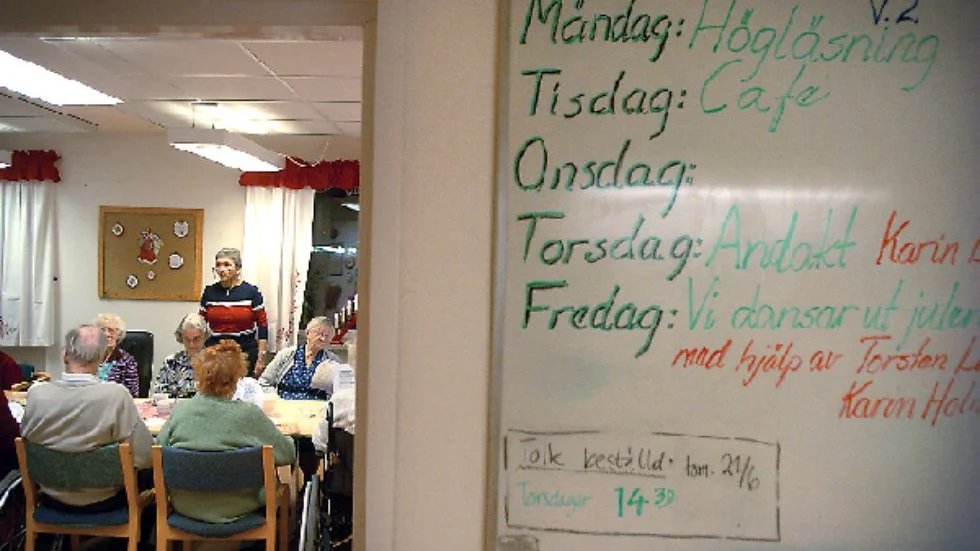 V.2
Måndag: Högläsning
Tisdag: Café
Onsdag:
Torsdag: Andakt Karin
Fredag: Vi dansar ut julen
med hjälp av Torsten
Karin
Tolk beställd: tom. 21/6
Torsdagar 14 30